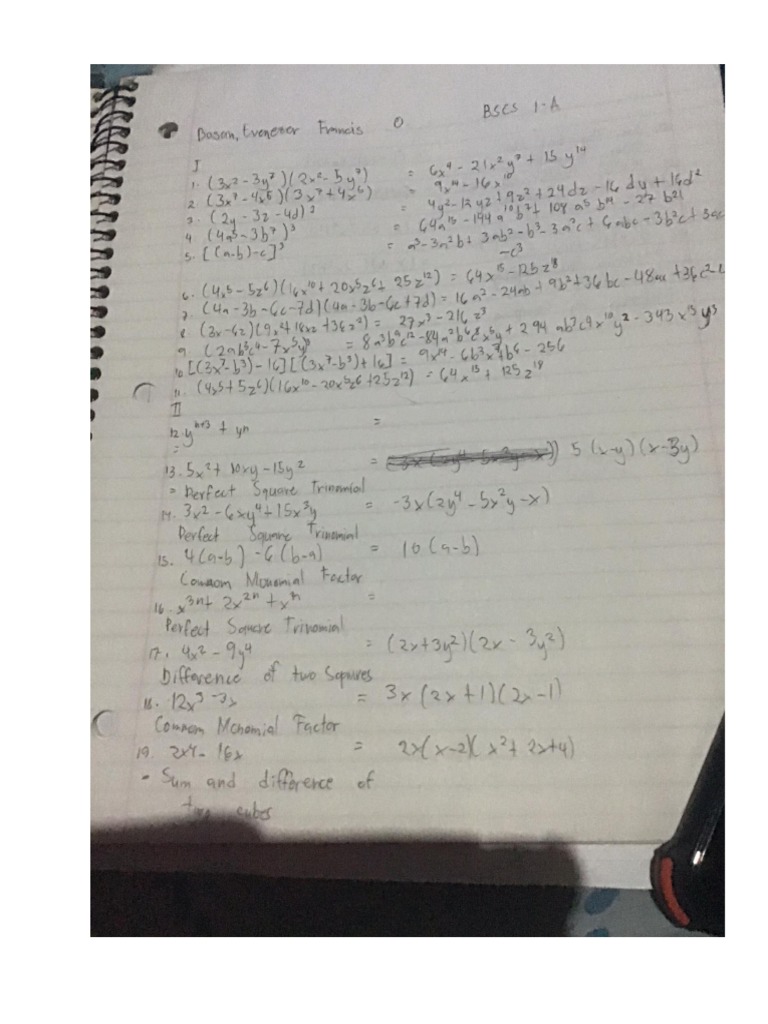 BSCS 1-A
Dason, Evenezer Francis O
I
1. (3x²-3y⁷)(2x²-5y⁷) = 6x⁴ - 21x²y⁷ + 15y¹⁴
2. (3x⁷-4x⁵)(3x⁷+4x⁵) = 9x¹⁴ - 16x¹⁰
3. (2y - 3z - 4d)² = 4y²-12yz+9z²+24dz-16dy+16d²
4. (4a⁵-3b⁷)³ = 64a¹⁵ - 144a¹⁰b⁷ + 108a⁵b¹⁴ - 27b²¹
5. [(a-b)-c]³ = a³-3a²b+3ab²-b³-3a²c+6abc-3b²c+3ac
-c³
6. (4x⁵-5z⁶)(16x¹⁰+20x⁵z⁶+25z¹²) = 64x¹⁵-125z¹⁸
7. (4a-3b-6c-7d)(4a-3b-6c+7d) = 16a²-24ab+9b²+36bc-48ac+36c²-
8. (3x-6z)(9x²+18xz+36z²) = 27x³-216z³
9. (2ab³c⁴-7x⁵y)³ = 8a³b⁹c¹²-84a²b⁶c⁸x⁵y+294ab³c⁴x¹⁰y²-343x¹⁵y³
10. [(3x⁷-b³)-16][(3x⁷-b³)+16] = 9x¹⁴-6b³x⁷+b⁶-256
11. (4x⁵+5z⁶)(16x¹⁰-20x⁵z⁶+25z¹²) = 64x¹⁵+125z¹⁸
II
12. yⁿ⁺³ + yⁿ =
=
13. 5x²+10xy-15y² = 5(x-y)(x-3y)
= Perfect Square Trinomial
14. 3x²-6xy⁴+15x³y = -3x(2y⁴-5x²y-x)
Perfect Square Trinomial
15. 4(a-b)-6(b-a) = 10(a-b)
Common Monomial Factor
16. x³ⁿ+2x²ⁿ+xⁿ =
Perfect Square Trinomial
17. 4x²-9y⁴ = (2x+3y²)(2x-3y²)
Difference of two Sqaures
18. 12x³-3x = 3x(2x+1)(2x-1)
Common Monomial Factor
19. 2x⁴-16x = 2x(x-2)(x²+2x+4)
- Sum and difference of
two cubes